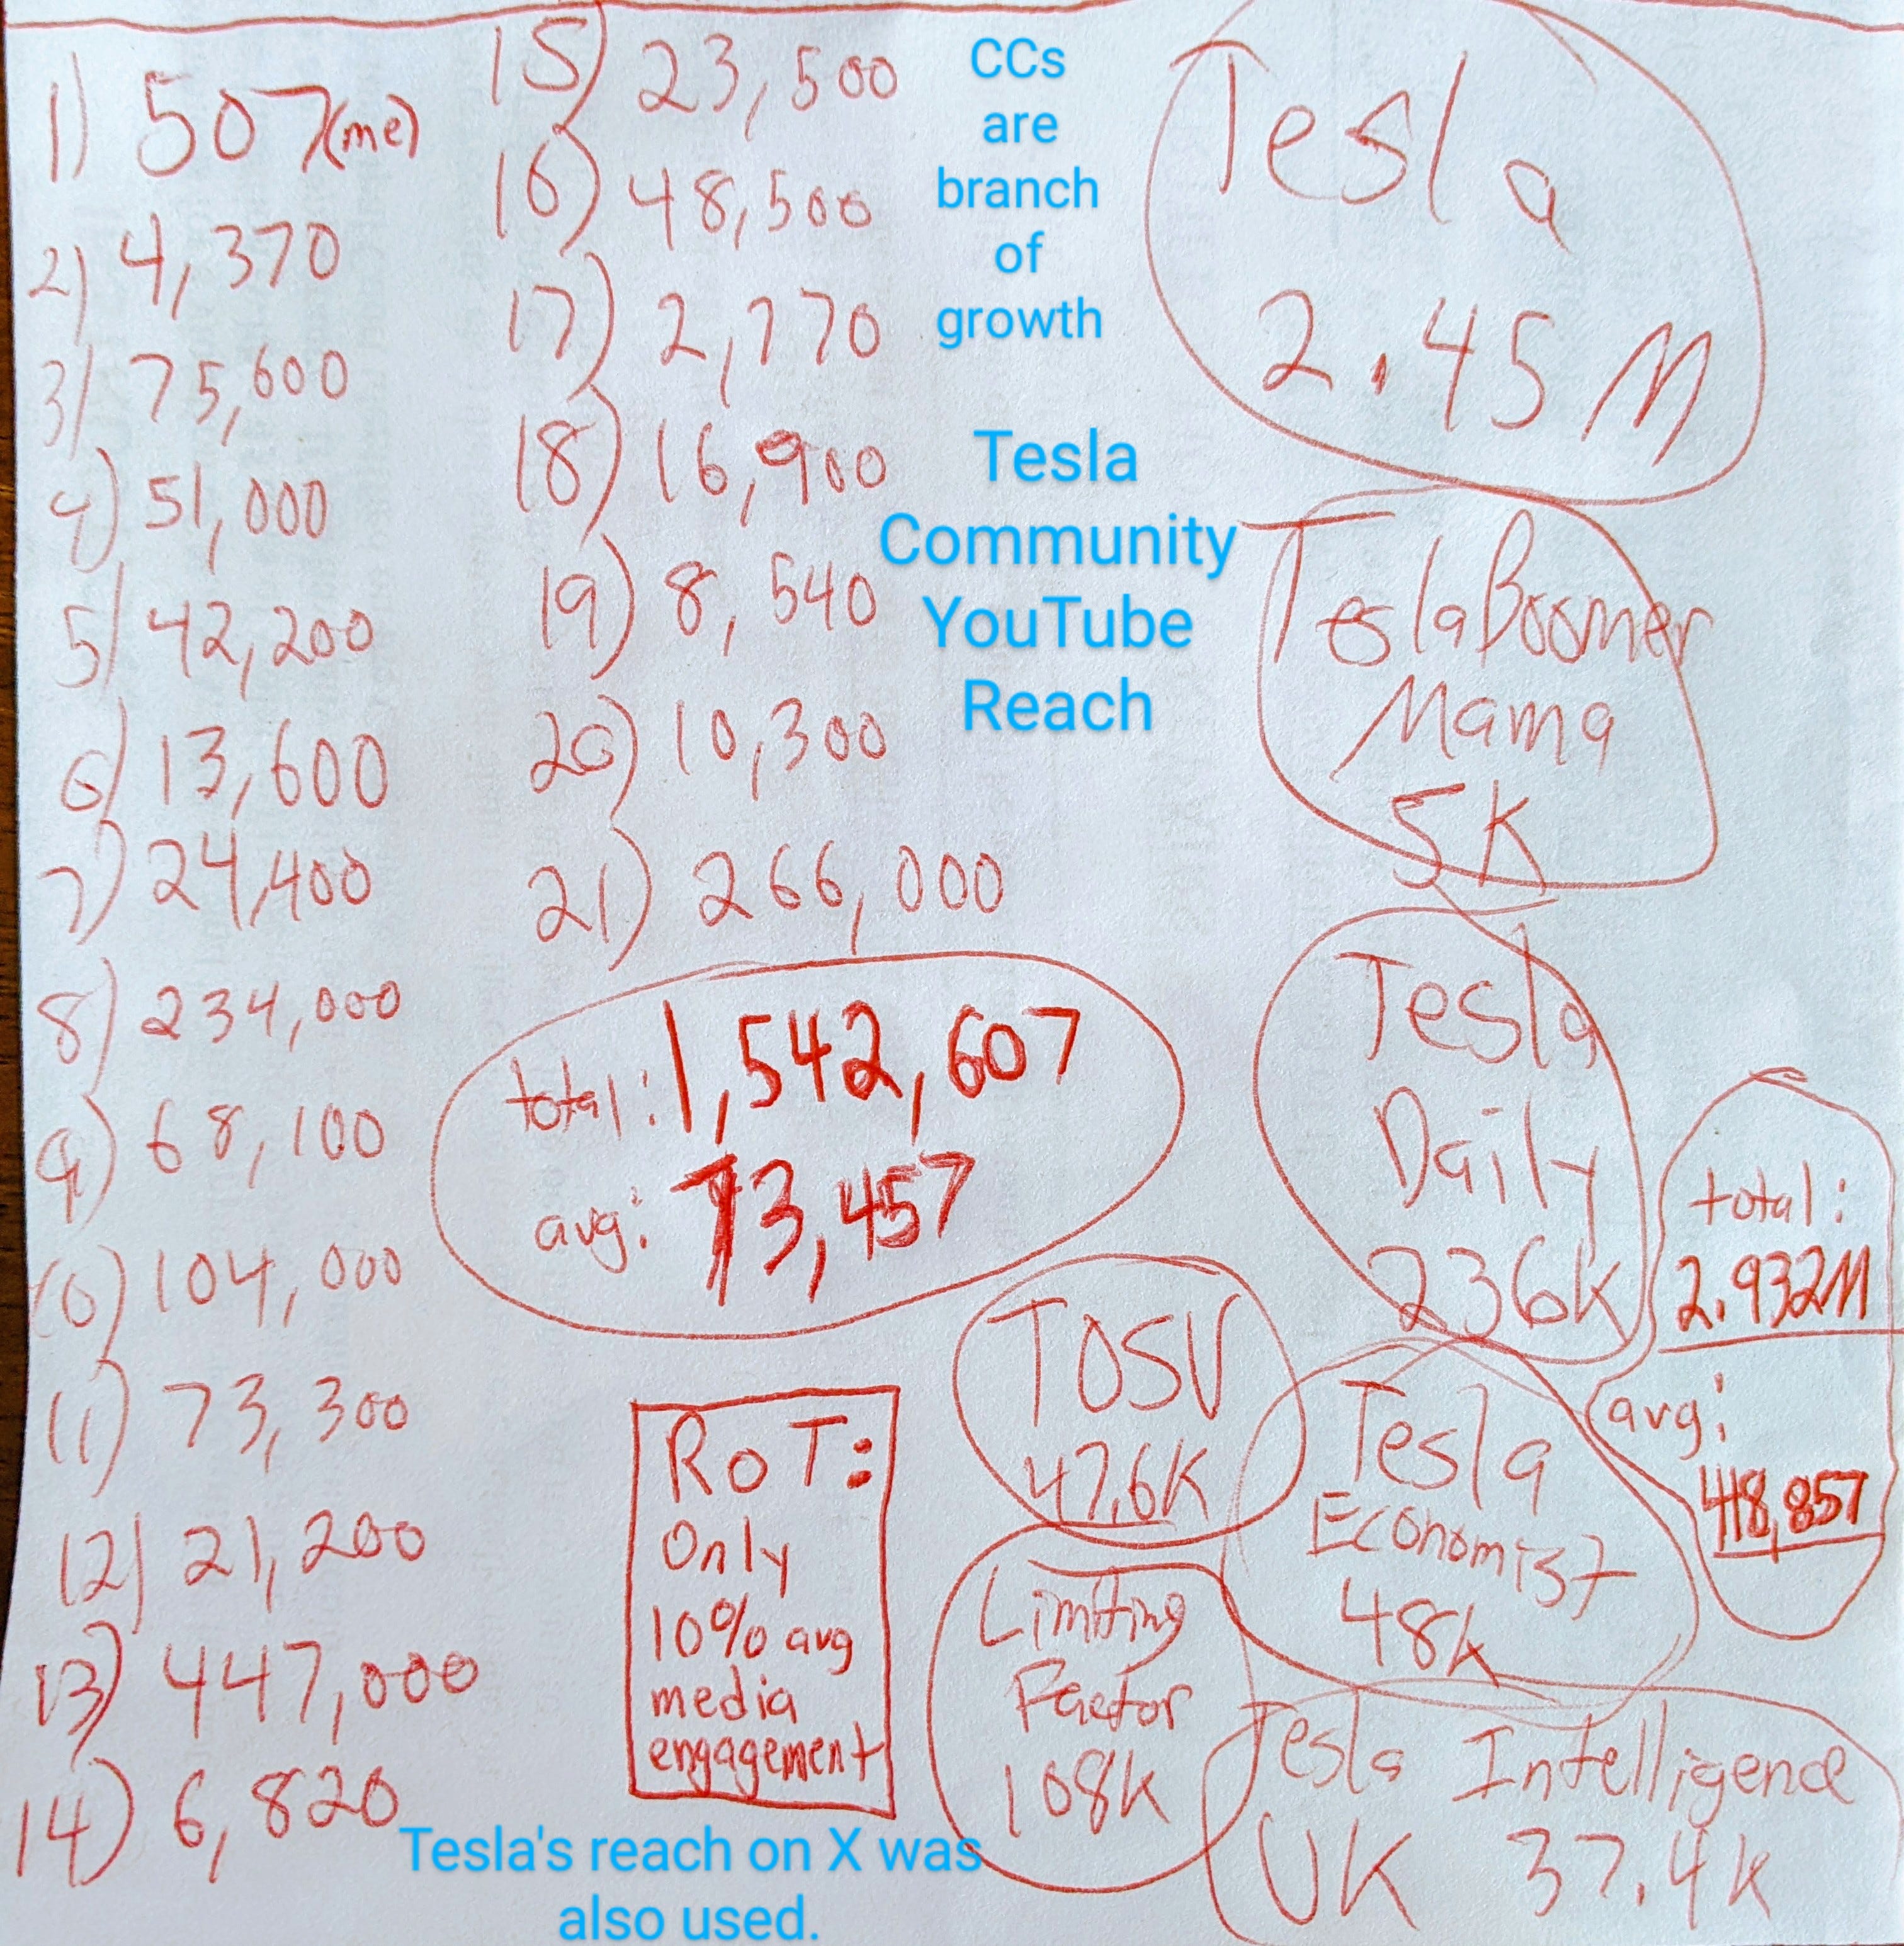 1) 507 (me)
2) 4,370
3) 75,600
4) 51,000
5) 42,200
6) 13,600
7) 24,400
8) 234,000
9) 68,100
10) 104,000
11) 73,300
12) 21,200
13) 447,000
14) 6,820
15) 23,500
16) 48,500
17) 2,770
18) 16,900
19) 8,540
20) 10,300
21) 266,000
total: 1,542,607
avg: 73,457
RoT:
Only
10% avg
media
engagement
CCs
are
branch
of
growth
Tesla
Community
YouTube
Reach
Tesla
2.45 M
TeslaBoomer
Mama
5K
Tesla
Daily
236K
total:
2.932M
avg:
418,857
TOSV
47.6K
Tesla
Economist
48K
Limiting
Factor
108K
Tesla Intelligence
UK 37.4K
Tesla's reach on X was
also used.